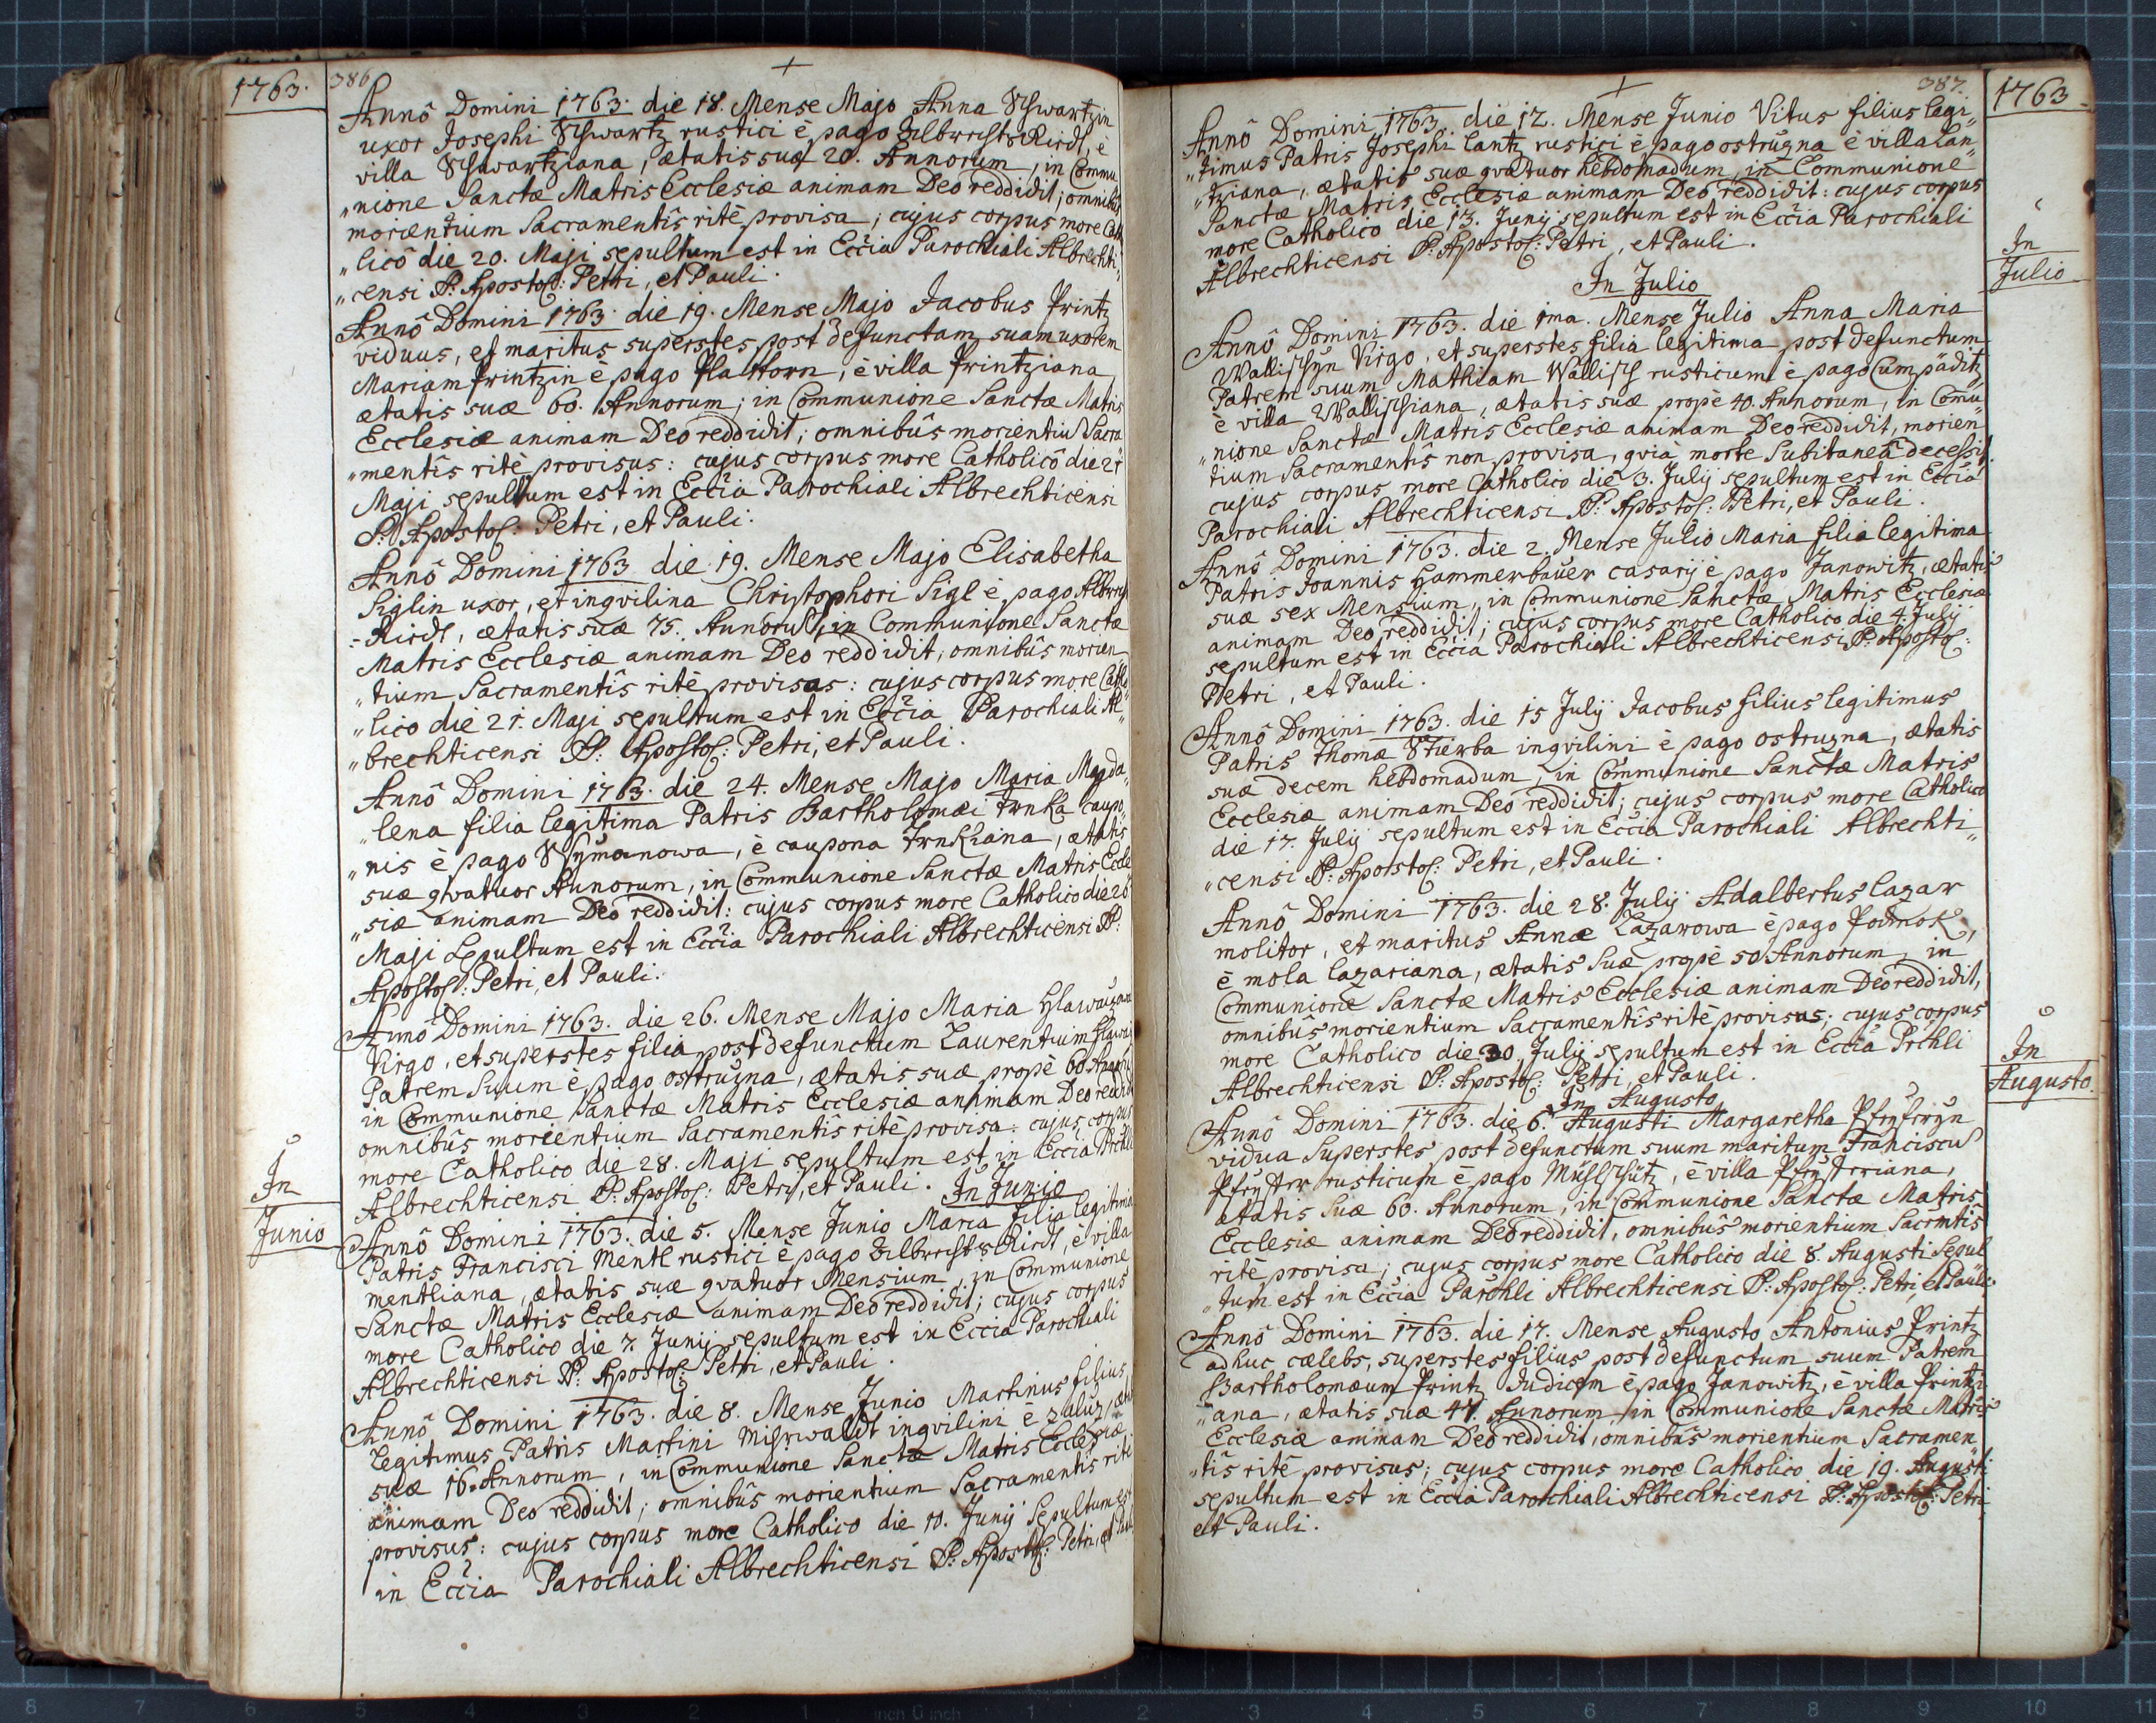 1763.
386
Annô Domini 1763. die 18. Mense Majo Anna Schwartzin
uxor Josephi Schwartz rustici è pago Albrechts Riedt, è
villa Schwartziana, ætatis suæ 20. Annorum, in Commu
„nione Sanctæ Matris Ecclesiæ animam Deo reddidit; omnibus
morientium Sacramentîs ritè provisa; cujus corpus more Catho
„licô die 20. Maji sepultum est in Eccia Parochiali Albrechti„
„censi SS. Apostol: Petri, et Pauli.
Annô Domini 1763. die 19. Mense Majo Jacobus Printz
viduus, et maritus superstes post defunctam suam uxorem
Mariam Printzin è pago Plattorn, è villa Printziana
ætatis suæ 60. Annorum; in Communione Sanctæ Matris
Ecclesiæ animam Deo reddidit; omnibûs morientiu Sacra
„mentîs ritè provisus: cujus corpus more Catholicô die 21
Maji sepultum est in Eccia Parochiali Albrechticensi
SS. Apostol: Petri, et Pauli.
Annô Domini 1763. die 19. Mense Majo Elisabetha
Siglin uxor, et inqvilina Christophori Sigl è pago
Riedt, ætatis suæ 75. Annoru, in Communione Sanctæ
Matris Ecclesiæ animam Deo reddidit, omnibûs morien
„tium Sacramentîs ritè provisas: cujus corpus more Catho„
„lico die 21. Maji sepultum est in Eccia Parochiali Al„
„brechticensi SS. Apostol: Petri, et Pauli.
Annô Domini 1763. die 24. Mense Majo Maria Magda„
„lena filia legitima Patris Bartholomæi Trnka caupo„
„nis è pago Schymanowa, è caupona Trnkiana, ætatis
suæ qvatuor Annorum, in Communione Sanctæ Matris Eccle
„siæ animam Deo reddidit: cujus corpus more Catholico die 26
Maji Sepultum est in Eccia Parochiali Albrechticensi SS:
Apostol: Petri, et Pauli.
Annô Domini 1763. die 26. Mense Majo Maria
Virgo, et superstes filia post defunctum Laurentium
Patrem Suum è pago ostružna, ætatis suæ propè 60 Annoru
in Communione Sanctæ Matris Ecclesiæ animam Deo reddidit
omnibûs morientium Sacramentîs ritè provisa: cujus corpus
more Catholico die 28. Maji sepultum est in Eccia Prchli
Albrechticensi SS. Apostol: Petri, et Pauli. In Junio
In
Junio
Annô Domini 1763. die 5. Mense Junio Maria filia legitima
Patris Francisci Mentl rustici è pago Albrechts Riedt, è villa
mentliana, ætatis suæ qvatuor Mensium, in Communione
Sanctæ Matris Ecclesiæ animam Deo reddidit; cujus corpus
more Catholico die 7. Junij sepultum est in Eccia Parochiali
Albrechticensi SS. Apostol: Petri, et Pauli.
Annô Domini 1763. die 8. Mense Junio Martinus filius
Legitimus Patris Martini inqvilini è zaluž, ætatis
suæ 16. Annorum, in Communione Sanctæ Matris Ecclesiæ
animam Deo reddidit; omnibûs morientium Sacramentis ritè
provisus: cujus corpus more Catholico die 10. Junij Sepultum est
in Eccia Parochiali Albrechticensi SS. Apostol: Petri, et Pauli
387.
1763
Annô Domini 1763. die 12. Mense Junio Vitus filius legi„
„timus Patris Josephi Lantz rustici è pago ostružna è villa Lan
„tziana, ætatis suæ qvatuor hebdomadum, in Communione
Sanctæ Matris Ecclesiæ animam Deo reddidit: cujus corpus
more Catholico die 13. Junij sepultum est in Eccia Parochiali
Albrechticensi SS. Apostol: Petri, et Pauli.
In Julio
In
Julio
Annô Domini 1763. die 1ma. Mense Julio Anna Maria
Wallischyn Virgo, et superstes filia legitima post defunctum
Patrem suum Mathiam Wallisch rusticum è pago Cumpäditz
è villa Wallischiana, ætatis suæ propè 40. Annorum, in Comu„
„nione Sanctæ Matris Ecclesiæ animam Deo reddidit, morien
tium Sacramentîs non provisa, qvia morte Subitaneâ decessit.
cujus corpus more Catholico die 3. Julij sepultum est in Eccia
Parochiali Albrechticensi SS. Apostol: Petri, et Pauli.
Annô Domini 1763. die 2. Mense Julio Maria filia legitima
Patris Joannis Hammerbauer casarij è pago Janowitz, ætatis
suæ sex Mensium, in Communione Sanctæ Matris Ecclesiæ
animam Deo reddidit; cujus corpus more Catholico die 4. Julij
sepultum est in Eccia Parochiali Albrechticensi SS. Apostol:
Petri, et Pauli.
Annô Domini 1763. die 15 Julij Jacobus filius legitimus
Patris Thomæ Stierba inqvilini è pago ostružna, ætatis
suæ decem hebdomadum, in Communione Sanctæ Matris
Ecclesiæ animam Deo reddidit; cujus corpus more Catholico
die 17. Julij sepultum est in Eccia Parochiali Albrechti„
„censi SS. Apostol: Petri, et Pauli.
Annô Domini 1763. die 28. Julij Adalbertus Lazar
molitor, et maritus Annæ Lazarowa è pago Podmok,
è mola Lazariana, ætatis Suæ propè 50 Annorum, in
Communione Sanctæ Matris Ecclesiæ animam Deo reddidit,
omnibûs morientium Sacramentîs ritè provisus; cujus corpus
more Catholico die 30 Julij sepultum est in Eccia Prchli
Albrechticensi SS. Apostol: Petri, et Pauli.
In Augusto
In
Augusto.
Annô Domini 1763. die 6. Augusti Margaretha
vidua Superstes post defunctum suum maritum Franciscu
rusticum è pago Müschschütz, è villa
ætatis Suæ 60. Annorum, in Communione Sanctæ Matris
Ecclesiæ animam Deo reddidit, omnibûs morientium Sacrmtis
ritè provisa; cujus corpus more Catholico die 8. Augusti Sepul
„tum est in Eccia Parchli Albrechticensi SS. Apostol: Petri, et Pauli.
Annô Domini 1763. die 17. Mense Augusto Antonius Printz
adhuc cælebs, superstes filius post defunctum suum Patrem
Bartholomæum Printz Judicem è pago Janowitz, è villa Printzi
„ana, ætatis suæ 47. Annorum, in Communione Sanctæ Matris
Ecclesiæ animam Deo reddidit, omnibûs morientium Sacramen„
„tis ritè provisus; cujus corpus more Catholico die 19. Augusti
sepultum est in Eccia Parochiali Albrechticensi SS. Apostol: Petri
et Pauli.